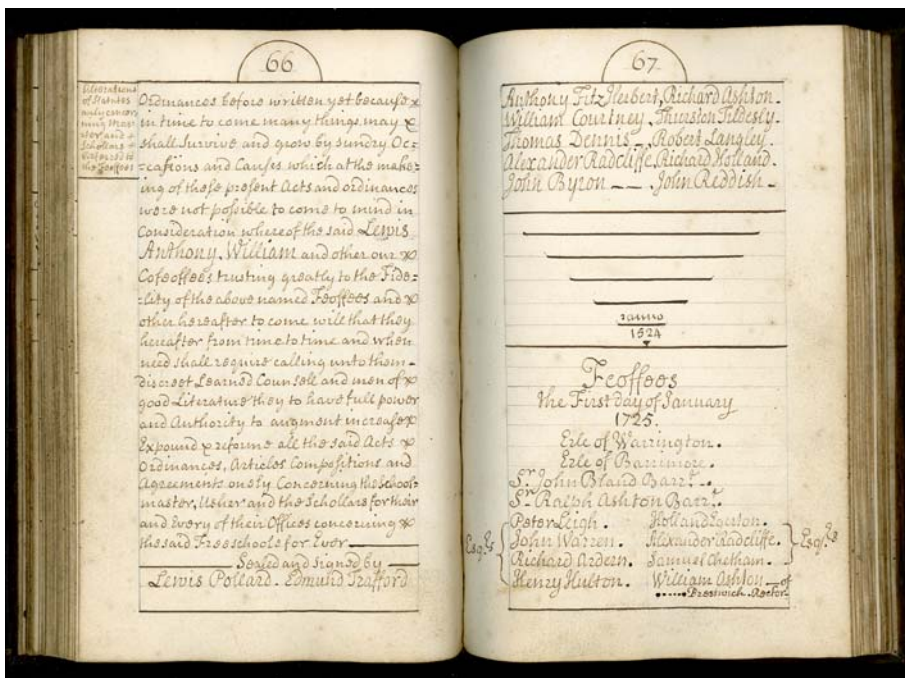 66
Alterations
of Statutes
only concer
ning Mas-
ter and
Schollars
referred to
the Feoffees
Ordinances before written yet because
in time to come many things may
shall Survive and grow by sundry Oc=
=casions and Causes which at the make=
ing of these present Acts and ordinances
were not possible to come to mind in
Consideration whereof the said Lewis
Anthony, William and other our
Cofeoffees trusting greatly to the Fide=
=lity of the above named Feoffees and
other hereafter to come will that they
hereafter from time to time and when
need shall require calling unto them -
discreet Learned Counsell and men of
good Literature they to have full power
and Authority to augment increase
Expound & reforme all the said Acts
Ordinances, Articles Compositions and
Agreements only Concerning the School=
master, Usher and the Schollars for their
and Every of their Offices concerning
the said Freeschools for Ever
Sealed and signed by
Lewis Pollard - Edmund Trafford
67
Anthony FitzHerbert, Richard Ashton -
William Courtney - Thurston Tildesly -
Thomas Dennis - Robert Langley -
Alexander Radcliffe, Richard Holland -
John Byron - - John Reddish -
anno
1524
Feoffees
the First day of January
1725.
Erle of Warrington.
Erle of Barrimore.
Sr. John Bland Barrt.
Sr. Ralph Ashton Barrt.
Peter Leigh. Holland Egerton.
Esqrs John Warren. Alexander Radcliffe. Esqrs
Richard Ardern. Samuel Chetham.
Henry Hulton. William Ashton - of
Prestwich Rector-